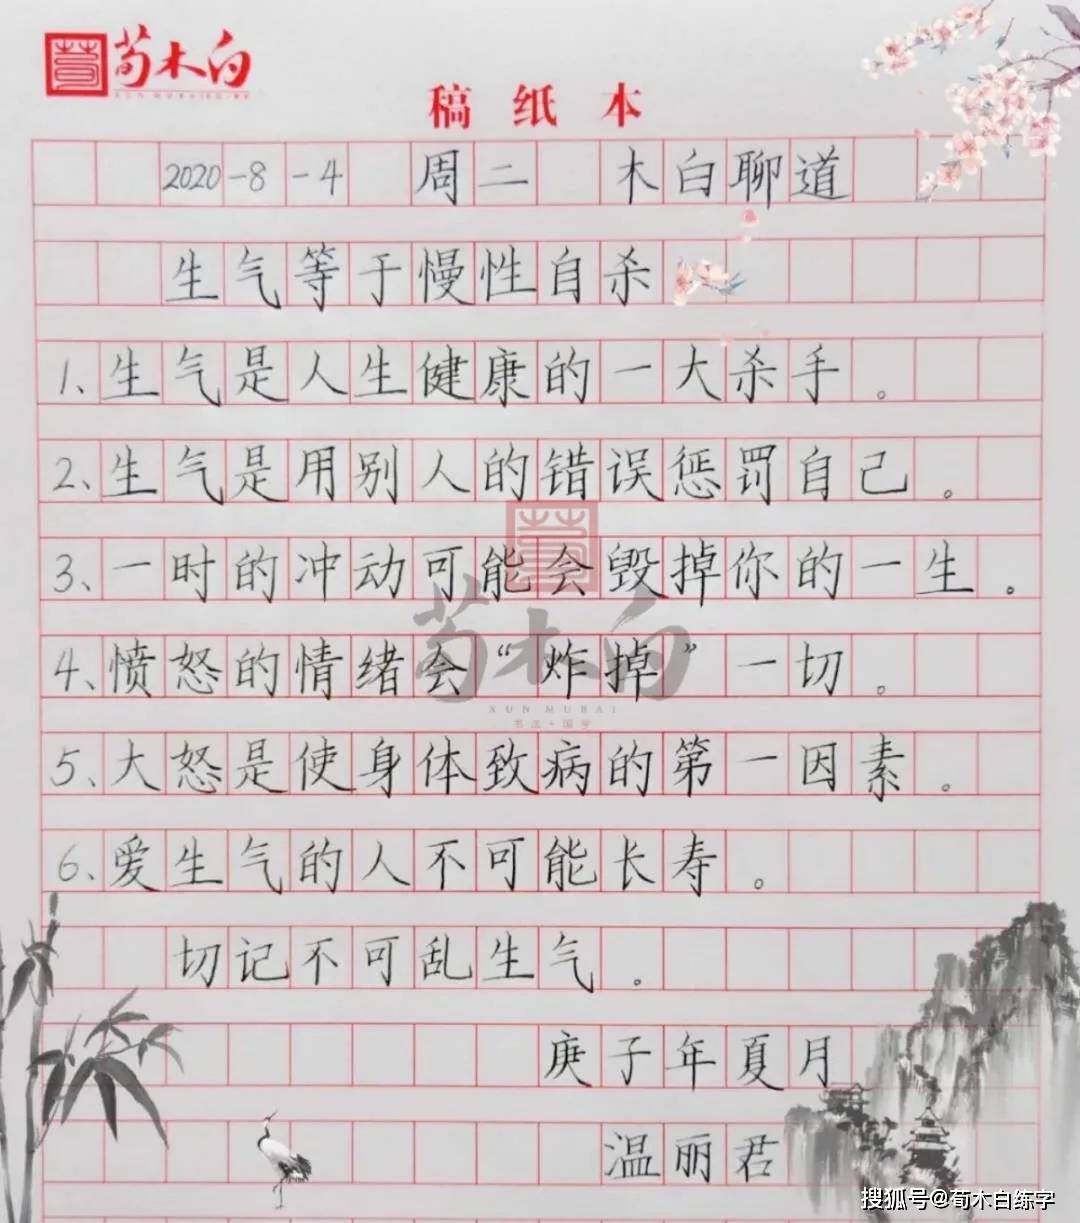 荀木白
XUN MUBAI
稿纸本
2020-8-4 周二 木白聊道
生气等于慢性自杀
1、生气是人生健康的一大杀手。
2、生气是用别人的错误惩罚自己。
3、一时的冲动可能会毁掉你的一生。
4、愤怒的情绪会“炸掉”一切。
5、大怒是使身体致病的第一因素。
6、爱生气的人不可能长寿。
切记不可乱生气。
庚子年夏月
温丽君
荀木白
XUN MUBAI
书法·国学
搜狐号@荀木白练字